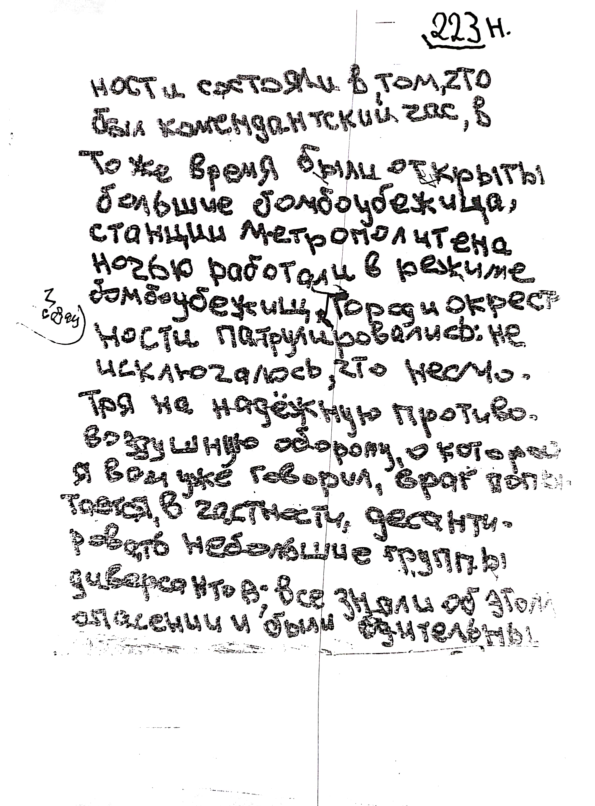 223 н.
ности состояли в том, что
был комендантский час, в
то же время были открыты
большие бомбоубежища,
станции Метрополитена
ночью работали в режиме
бомбоубежищ. Город и окрест
ности патрулировались: не
исключалось, что несмо-
тря на надёжную противо-
воздушную оборону, о которой
я вам уже говорил, враг попы
тается, в частности, десанти-
ровать небольшие группы
диверсантов; все знали об этом
опасении и были бдительны